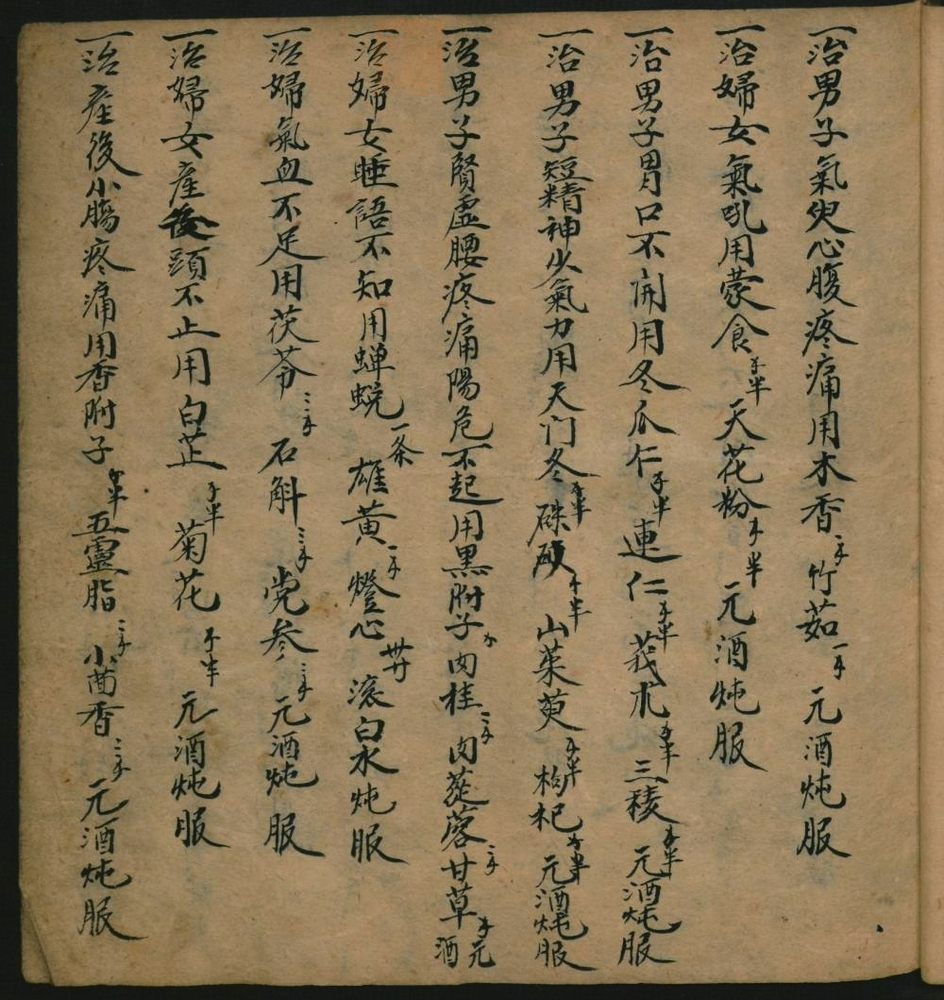 一治男子氣 心腹疼痛用木香二 竹茹一 元酒炖服
一治婦女氣吼用蒙食 半天花粉 半元酒炖服
一治男子胃口不開用冬瓜仁 半連仁 半莪朮 半三稜 半元酒炖服
一治男子短精神少氣力用天门冬 半硃砂 半山茱萸 半枸杞 半元酒炖服
一治男子腎虛腰疼痛陽危不起用黑附子 肉桂二 肉蓯蓉二 甘草 元酒
一治婦女睡語不知用蟬蜕一条雄黄一 燈心卅滚白水炖服
一治婦氣血不足用茯苓二 石斛二 党参二 元酒炖服
一治婦女産後頭不止用白芷 半菊花 半元酒炖服
一治産後小腸疼痛用香附子 半五靈脂二 小茴香二 元酒炖服